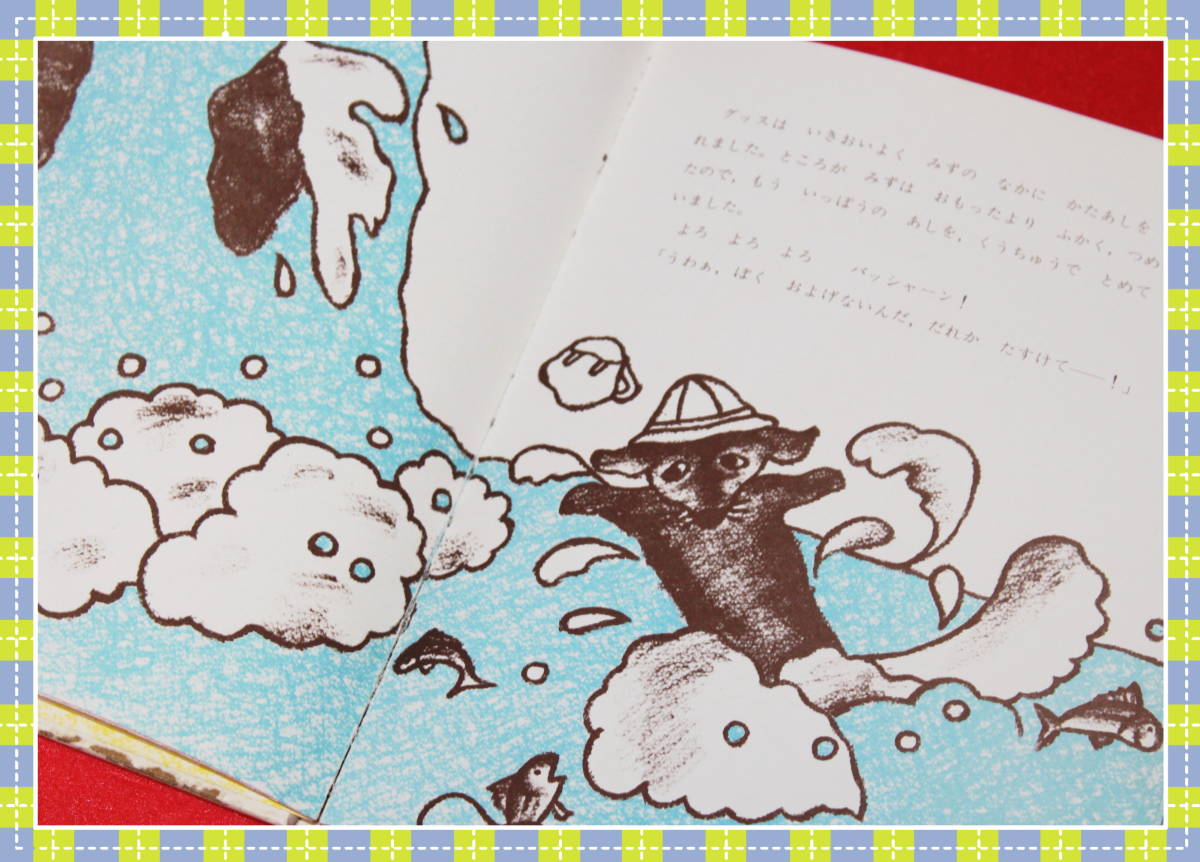 グッスは いきおいよく みずの なかに かたあしを
れました。ところが みずは おもったより ふかく，つめ
たので，もう いっぽうの あしを，くうちゅうで とめて
いました。
よろ よろ よろ バッシャーン！
「うわぁ，ぼく およげないんだ，だれか たすけて――！」